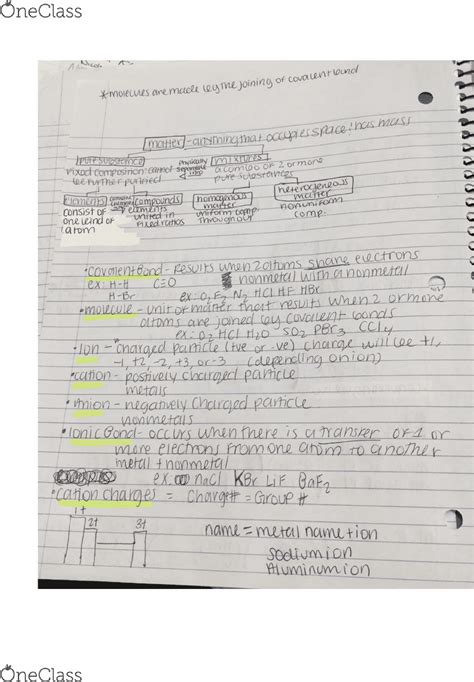 OneClass
*molecules are made by the joining of covalent bond
matter - anything that occupies space & has mass
pure substance
mixtures
fixed composition cannot be further purified
physically separable into
a combo of 2 or more pure substances
elements
compounds
homogenous matter
heterogeneous matter
consist of one kind of atom
elements united in fixed ratios
uniform comp. throughout
nonuniform comp.
•covalent Bond - Results when 2 atoms share electrons
ex: H-H C≡O nonmetal with a nonmetal
H-Br ex: O₂ F₂ N₂ HCl HF HBr
•molecule - unit of matter that results when 2 or more
atoms are joined by covalent bonds
ex: O₂ HCl H₂O SO₂ PBr₃ CCl₄
•Ion - charged particle (+ve or -ve) charge will be +1,
-1, +2, -2, +3, or -3 (depending on ion)
•cation - postively charged particle
metals
•Anion - negatively charged particle
nonmetals
•Ionic Bond - occurs when there is a transfer of 1 or
more electrons from one atom to another
metal + nonmetal
ex. NaCl KBr LiF BaF₂
•cation charges = Charge# = Group #
1+
2+ 3+
name = metal name + ion
sodium ion
Aluminum ion
OneClass